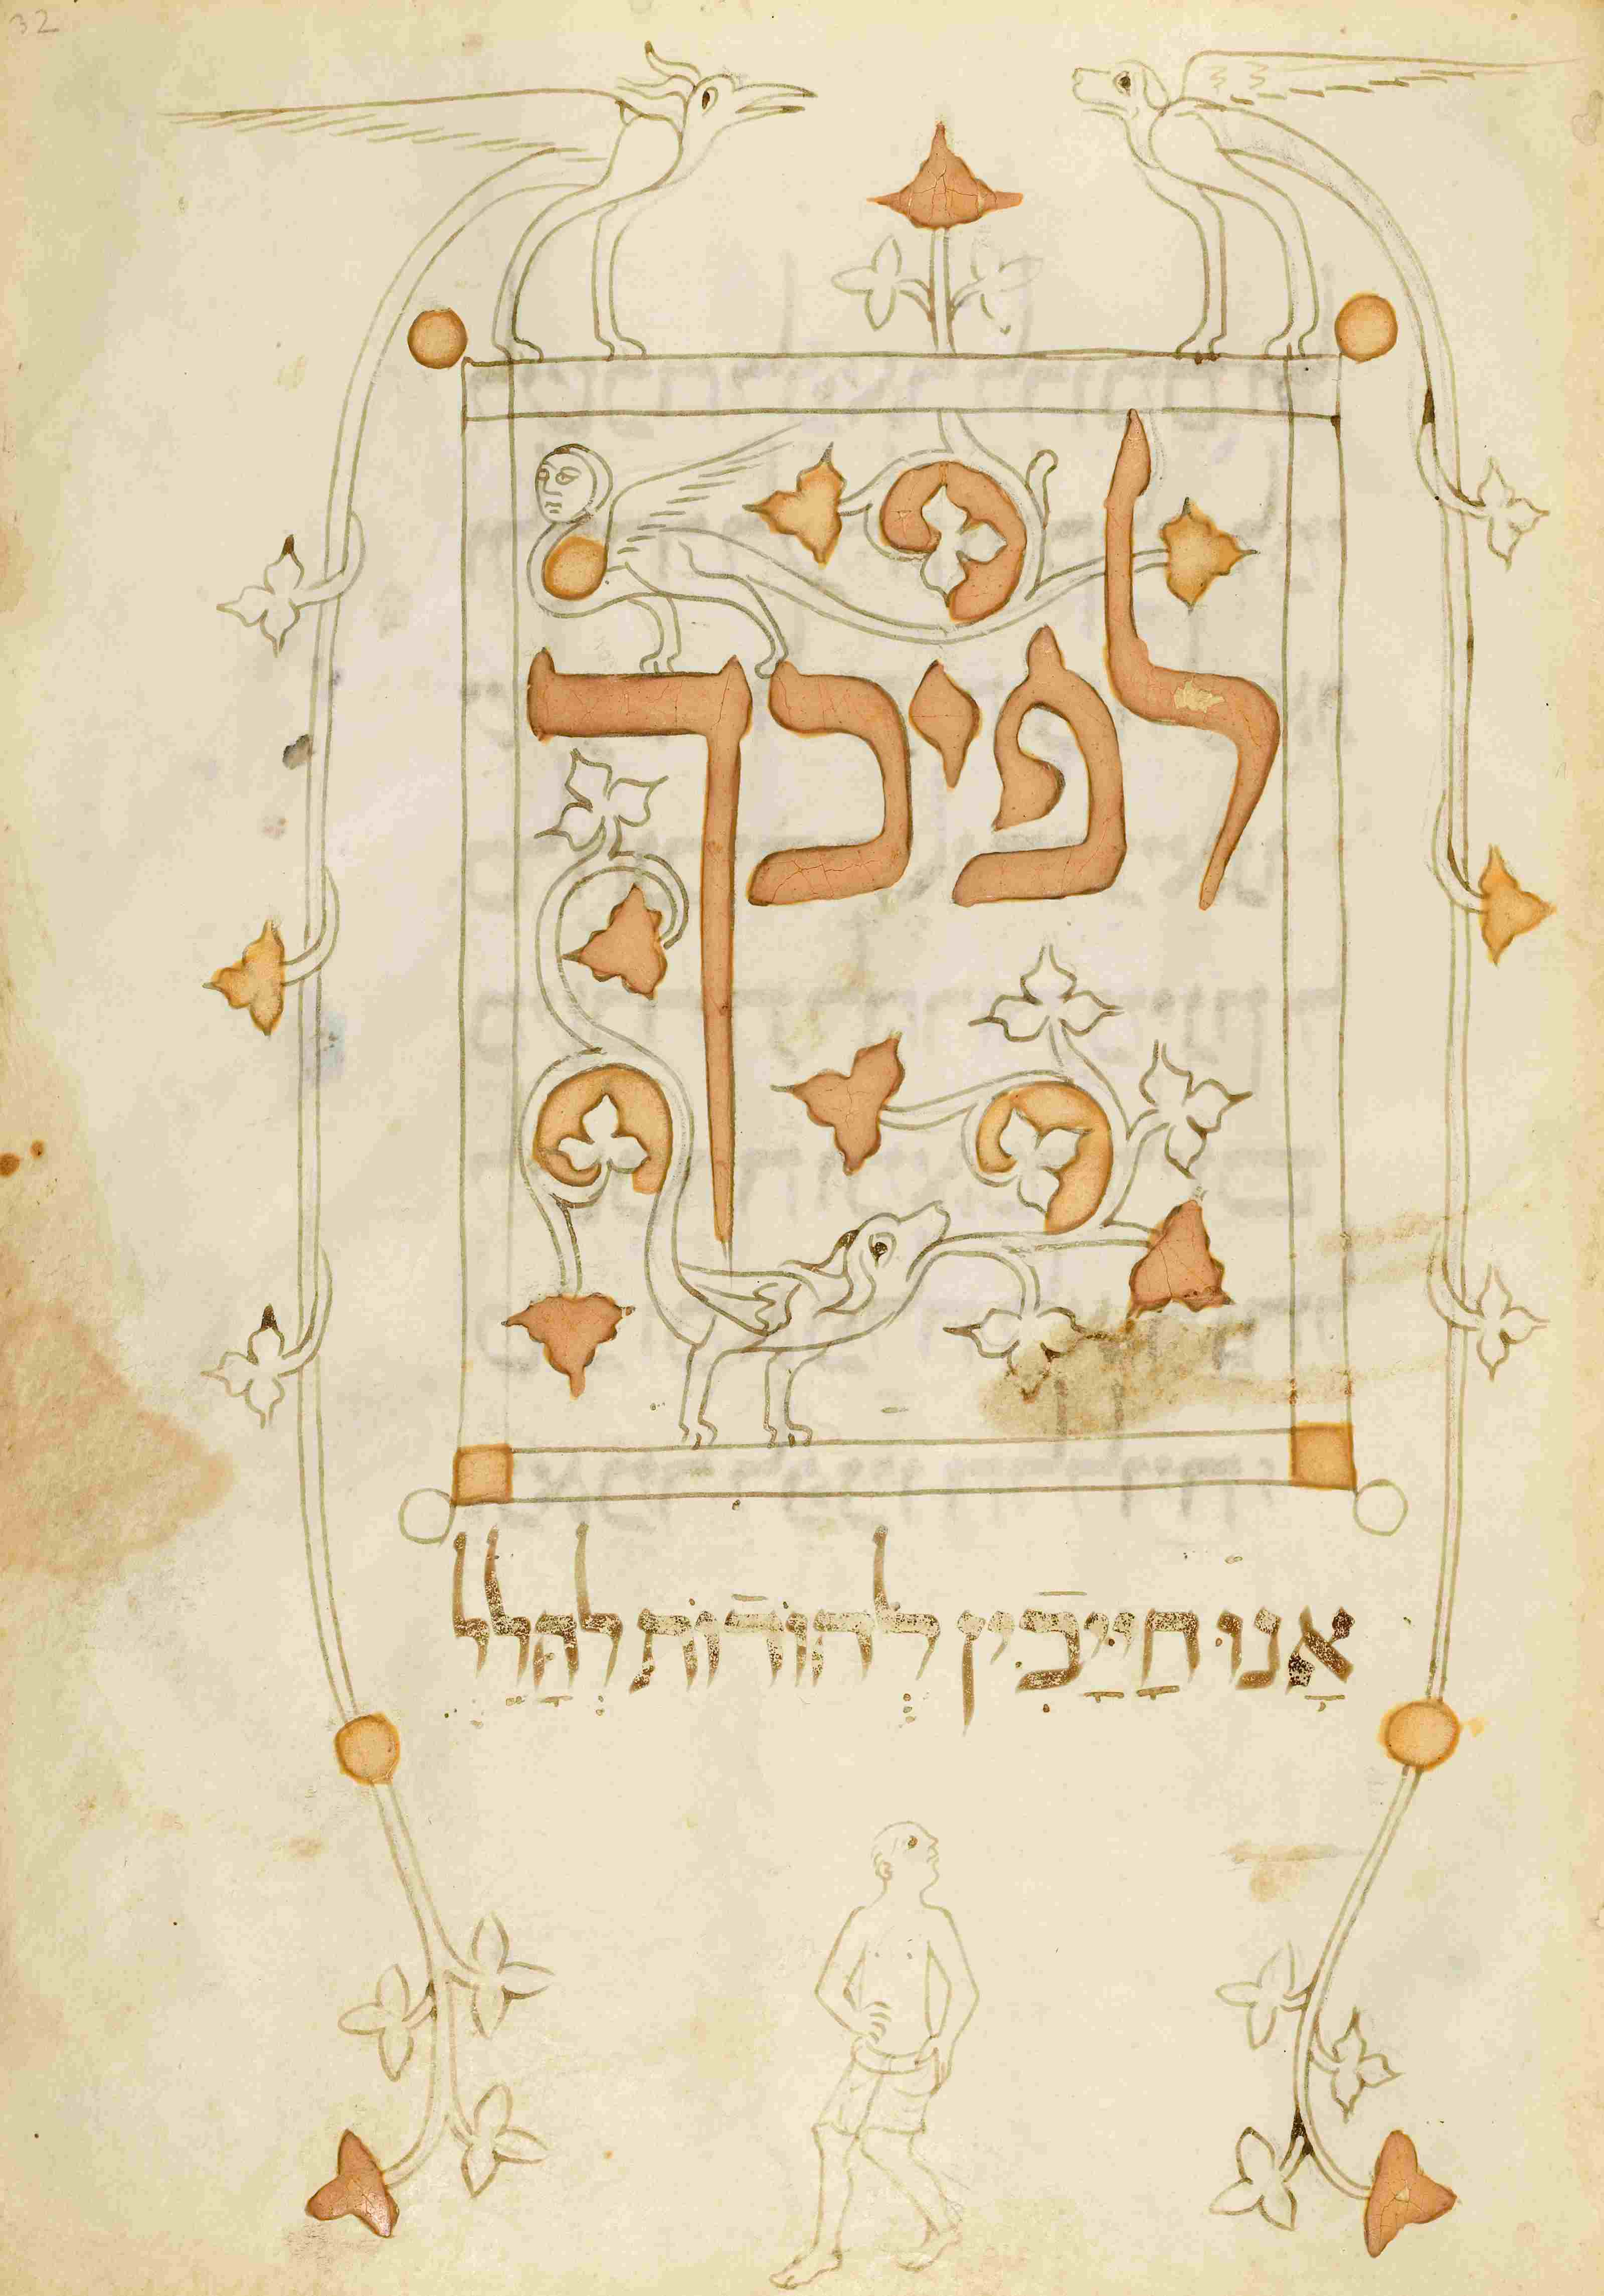 32
לפיכך
אָנוּ חַיַיבִֿין לְהוֹדֿוֹת לְהַלֵל